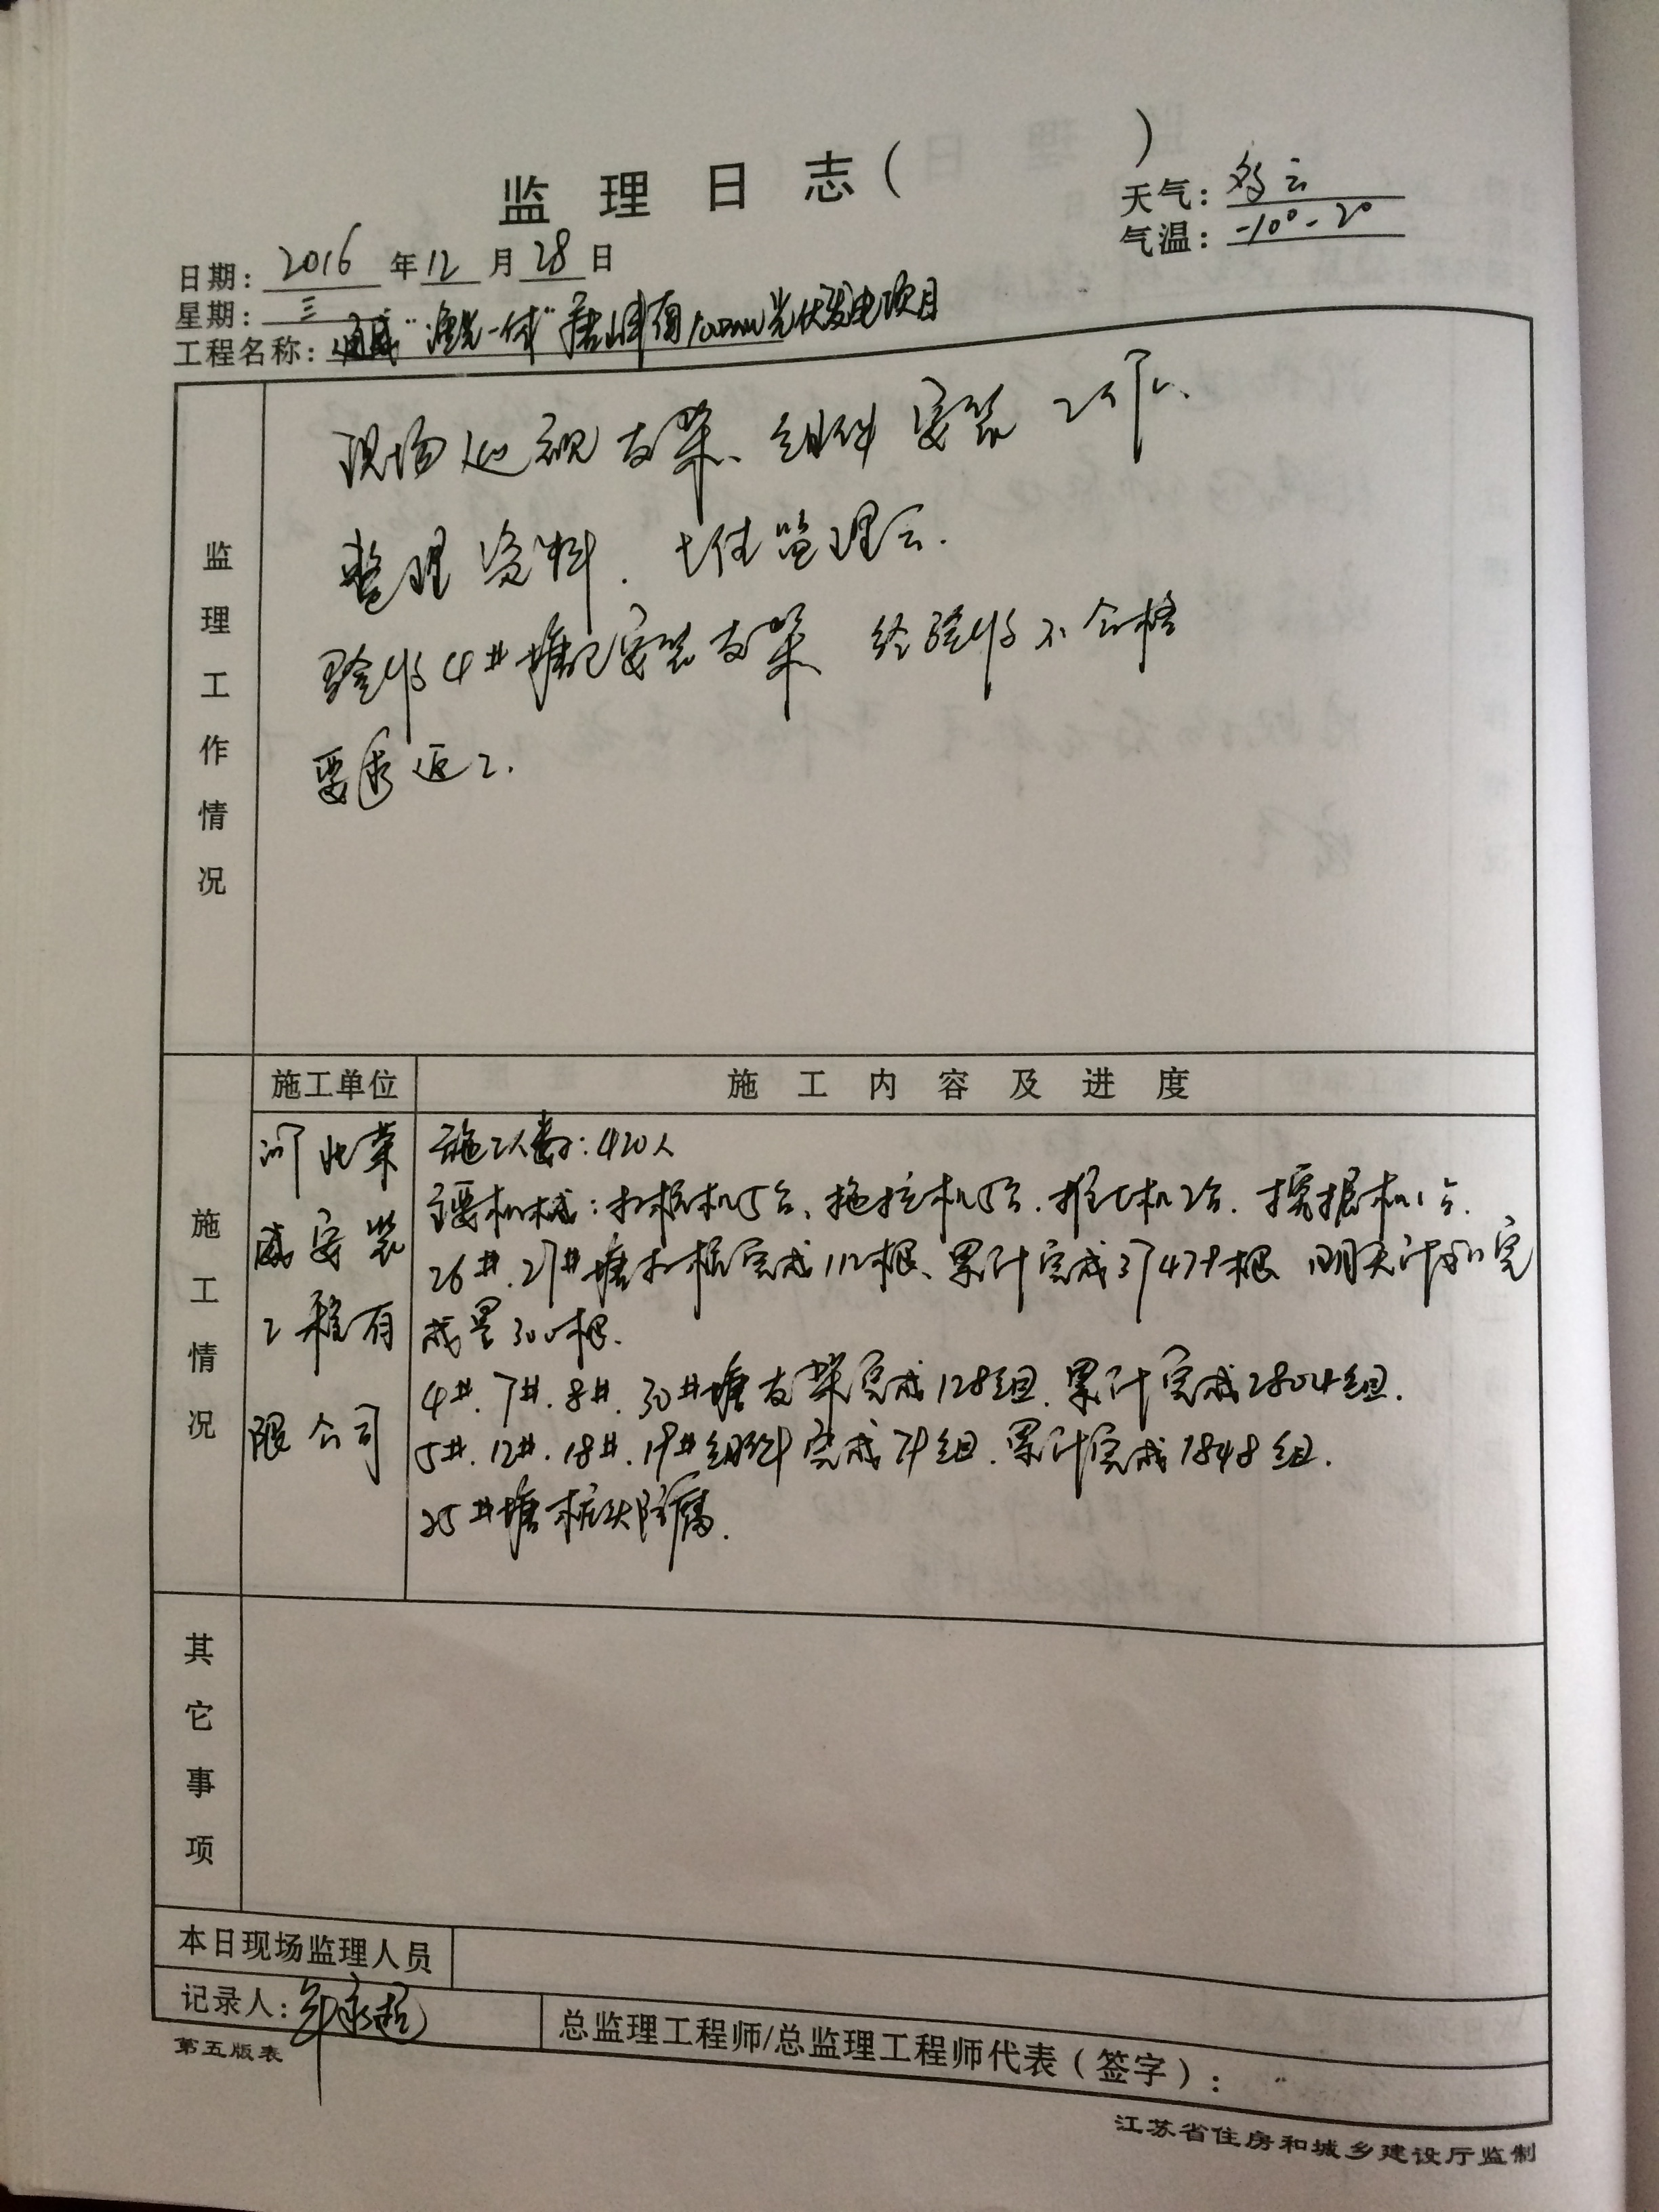 监理日志( )
天气: 多云
气温: -10°-2°
日期: 2016 年 12 月 28 日
星期: 三
工程名称: 通威"渔光一体"唐山丰南100MW光伏发电项目
监理工作情况
现场巡视支架、组件安装工作、
整理资料. 上传监理云.
验收4#塘已安装支架 经验收不合格
要求返工.
施工单位
施工内容及进度
施工情况
河北荣
威安装
工程有
限公司
施工人数:420人
主要机械:打桩机5台、拖拉机5台.推土机2台.挖掘机1台.
26#.27#塘打桩完成112根、累计完成37479根 明天计划完
成量300根.
4#.7#.8#.30#塘支架完成128组.累计完成2804组.
5#.12#.18#.19#组件完成74组.累计完成1848组.
25#塘桩头防腐.
其它事项
本日现场监理人员
记录人:
总监理工程师/总监理工程师代表(签字):
第五版表
江苏省住房和城乡建设厅监制